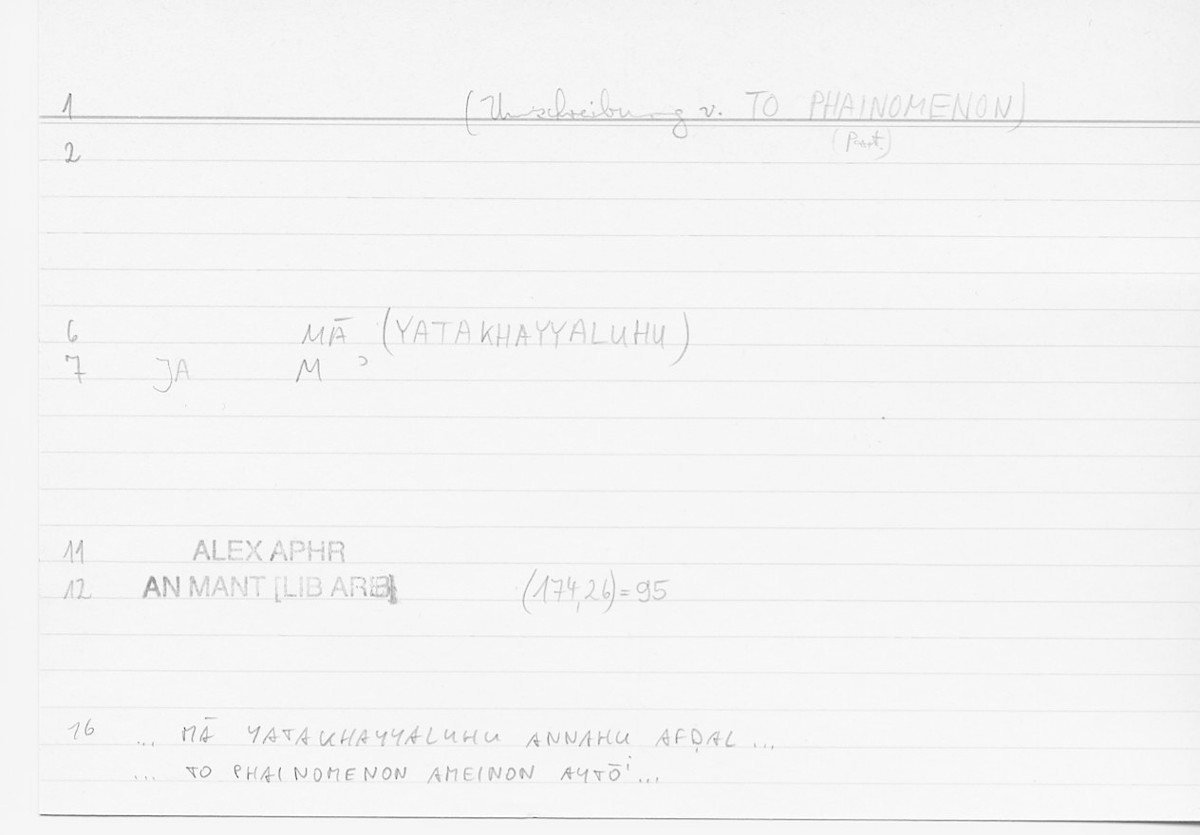 1 (Umschreibung v. TO PHAINOMENON)
(Part.)
2
6 MĀ (YATAKHAYYALUHU)
7 JA M ʾ
11 ALEX APHR
12 AN MANT [LIB ARB] (174,26)=95
16 ... MĀ YATAKHAYYALUHU ANNAHU AFḌAL ...
... TO PHAINOMENON AMEINON AYTŌⁱ ...